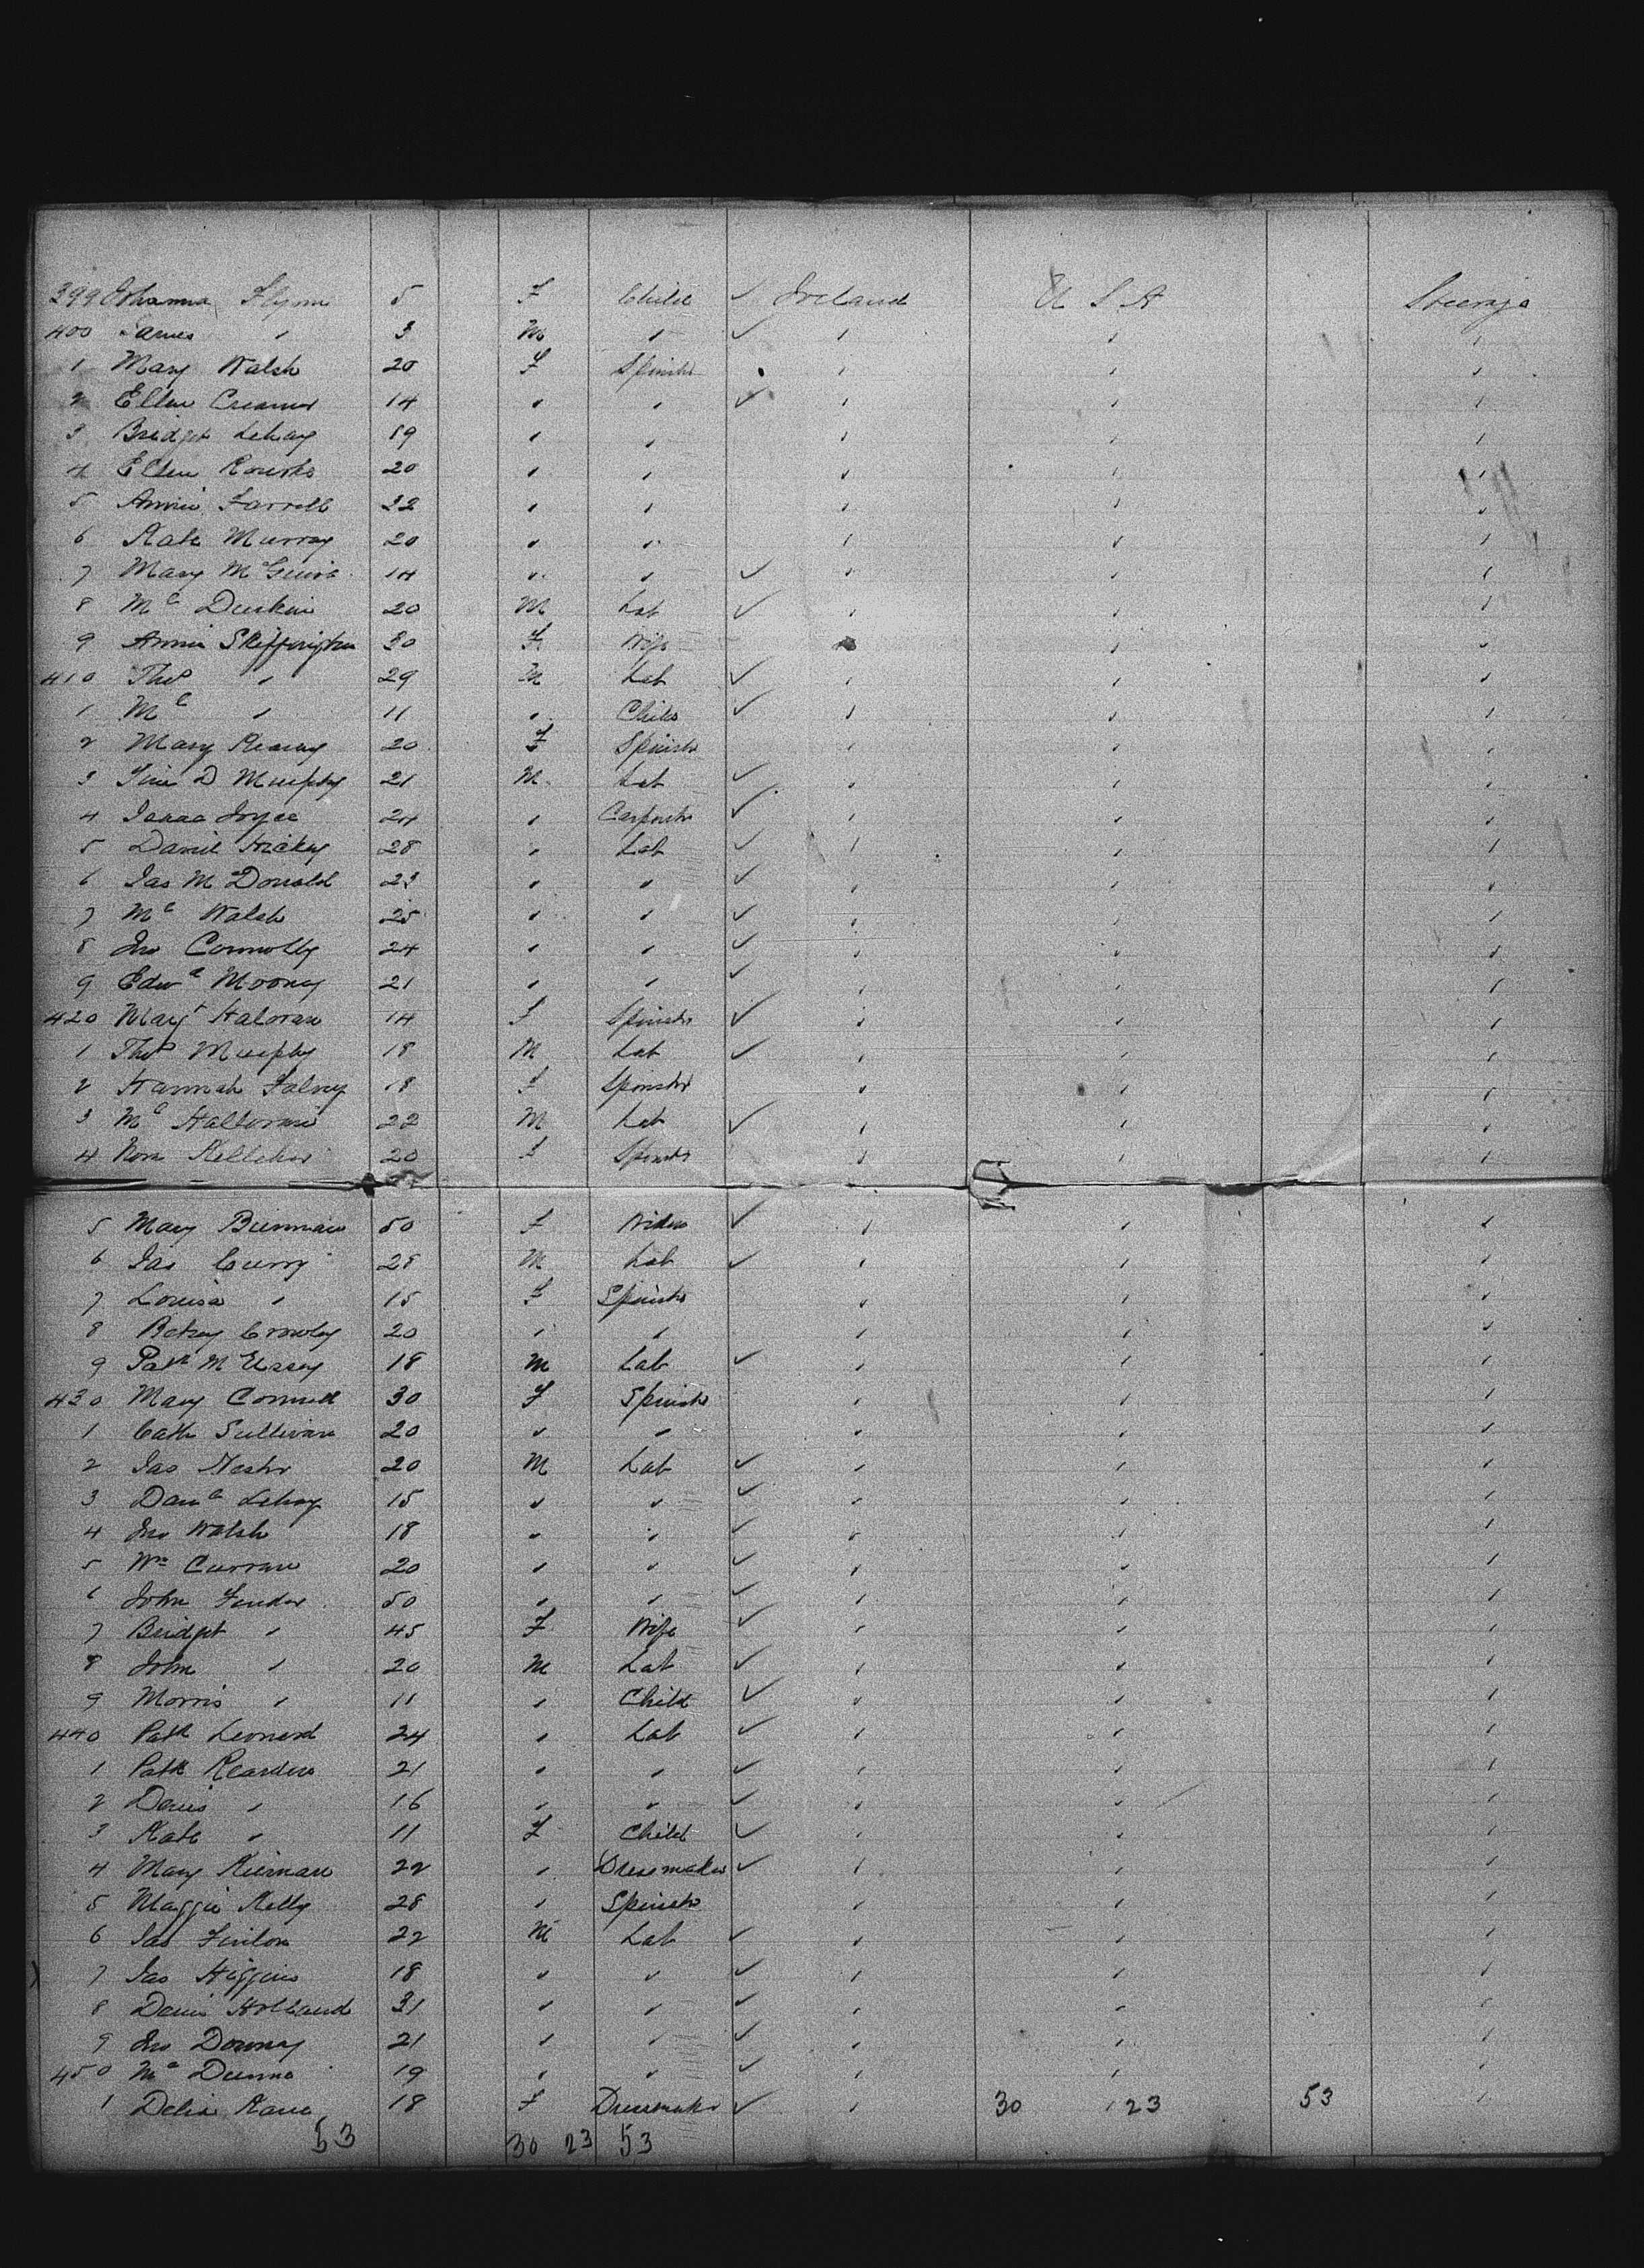 299 Johanna Flynn 5 F Child ✓ Ireland U S A Steerage
400 James " 3 M " ✓ " " "
1 Mary Walsh 20 F Spinstr " " "
2 Ellen Creamer 14 " " ✓ " " "
3 Bridget Lehay 19 " " " " "
4 Ellen Rourke 20 " " " " "
5 Annie Farrell 22 " " " " "
6 Kate Murray 20 " " " " "
7 Mary McGuire 14 " " ✓ " " "
8 Ml Durkin 20 M Lab ✓ " " "
9 Annie Skeffington 30 F Wife " " "
410 Thos " 29 M Lab ✓ " " "
1 Ml " 11 " Child ✓ " " "
2 Mary 20 F Spinstr " " "
3 Tim D Murphy 21 M Lab ✓ " " "
4 Isaac Joyce 24 " Carpentr ✓ " " "
5 Daniel Hickey 28 " Lab ✓ " " "
6 Jas McDonald 23 " " ✓ " " "
7 Ml Walsh 25 " " ✓ " " "
8 Jno Connolly 24 " " ✓ " " "
9 Edwd Mooney 21 " " ✓ " " "
420 Margt Haloran 14 F Spinstr ✓ " " "
1 Thos Murphy 18 M Lab ✓ " " "
2 Hannah Falvey 18 F Spinstr " " "
3 Ml 22 M Lab ✓ " " "
4 Nora Kelleher 20 F Spinstr " " "
5 Mary Brennan 50 F Widow ✓ " " "
6 Jas Curry 28 M Lab ✓ " " "
7 Louisa " 15 F Spinstr " " "
8 Betsey Crowley 20 " " " " "
9 Patk 18 M Lab ✓ " " "
430 Mary Connell 30 F Spinstr " " "
1 Cath Sullivan 20 " " " " "
2 Jas Nestor 20 M Lab ✓ " " "
3 Danl Lehay 15 " " ✓ " " "
4 Jno Walsh 18 " " ✓ " " "
5 Wm Curran 20 " " ✓ " " "
6 John 50 " " ✓ " " "
7 Bridget " 45 F Wife ✓ " " "
8 John " 20 M Lab ✓ " " "
9 Morris " 11 " Child ✓ " " "
440 Patk Leonard 24 " Lab ✓ " " "
1 Patk Reardon 21 " " ✓ " " "
2 Denis " 16 " " ✓ " " "
3 Kate " 11 F Child ✓ " " "
4 Mary Kiernan 22 " Dressmaker ✓ " " "
5 Maggie Kelly 28 " Spinstr " " "
6 Jas Finlon 22 M Lab ✓ " " "
7 Jas Higgins 18 " " ✓ " " "
8 Denis Holland 31 " " ✓ " " "
9 Jno Downey 21 " " ✓ " " "
450 Ml Dunne 19 " " ✓ " " "
1 Delia Kane 18 F Dressmakr ✓ " 30 " 23 53 "
53 30 23 53